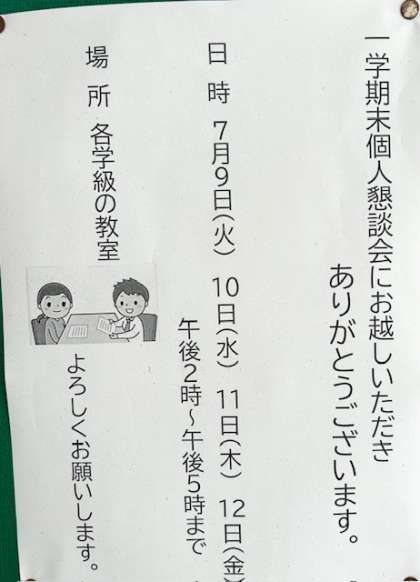 一学期末個人懇談会にお越しいただき
ありがとうございます。
日時 7月9日(火) 10日(水) 11日(木) 12日(金)
午後2時~午後5時まで
場所 各学級の教室
よろしくお願いします。